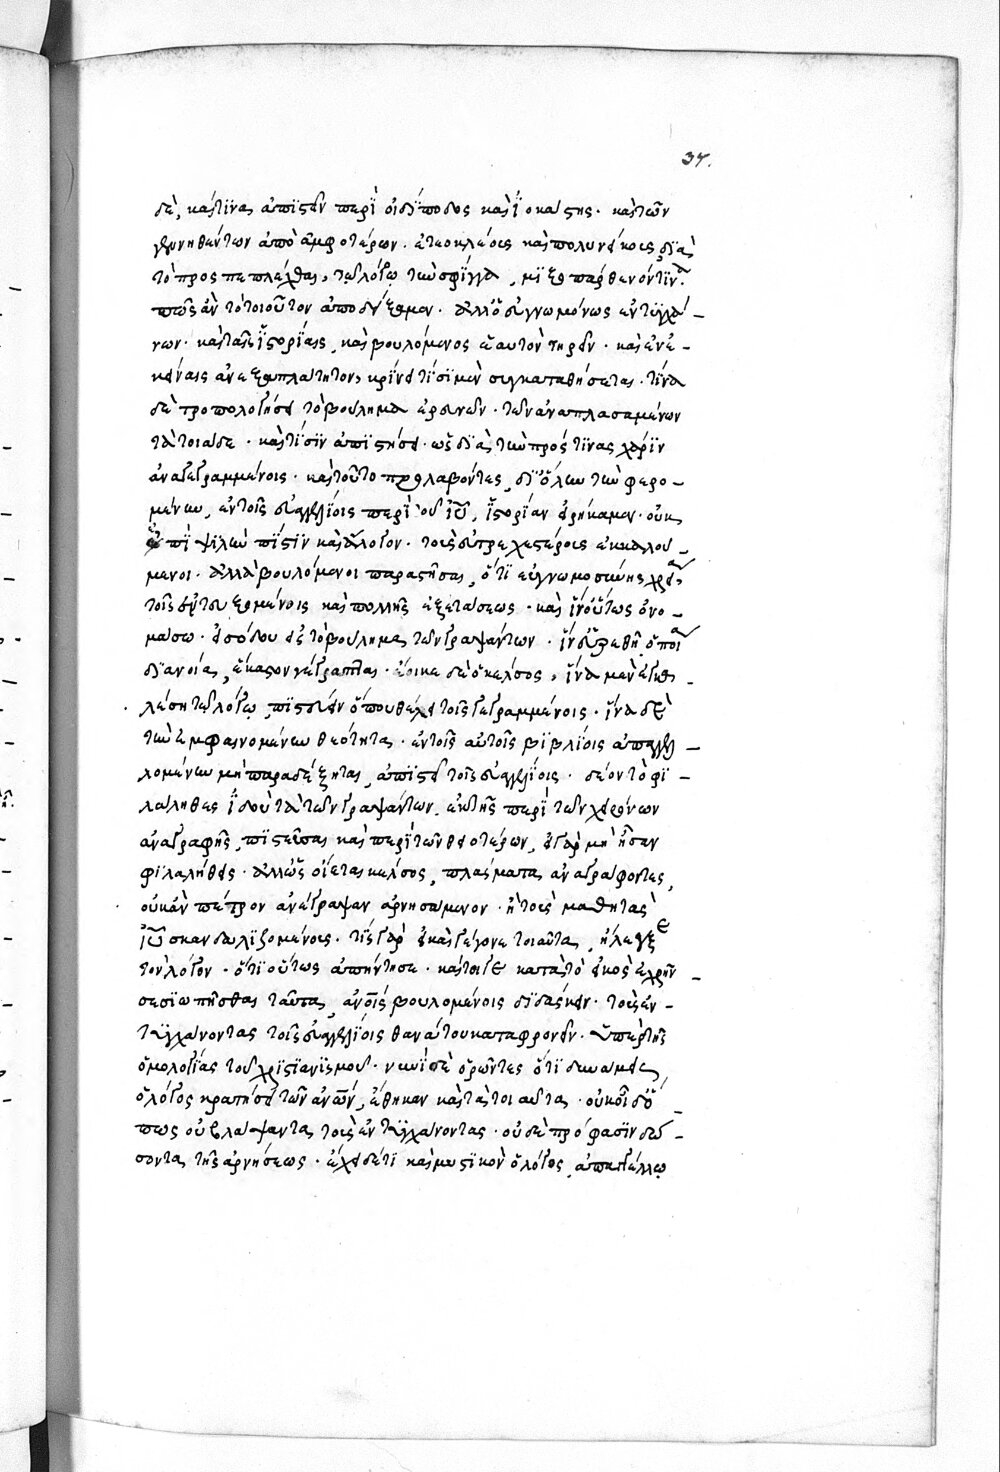 37.
δὲ, καί τϊνας ἀπϊστεῖν περῒ οἰδίποδος καὶ ἰοκάστης· καὶ τῶν
γεννηθέντων ἀπὸ ἀμφοτέρων· ἐτεοκλέους καὶ πολυνείκους, δϊὰ
τὸ προσπεπλέχθαι, τῷ λόγῳ τὴν σφίγγα, μϊξοπάρθενόν τϊνα.
πῶς ἂν τὸ τοιοῦτον ἀποδείξαιμεν· ἀλλ' ὁ εὐγνωμόνως ἐντυγχά-
νων· καὶ ταῖς ἱστορίαις, καὶ βουλόμενος ἑαυτὸν τηρεῖν· καὶ ἐν ἐ-
κείναις ἀνεξαπάτητον, κρίνει τίσι μὲν συγκαταθήσεται· τίνα
δὲ τροπολογήσει τὸ βούλημα ἐρευνῶν· τῶν ἀναπλασαμένων
τὰ τοιάδε· καὶ τίσϊν ἀπϊστήσει· ὡς δϊὰ τὴν πρός τϊνας χάρϊν
ἀναγεγραμμένοις· καὶ τοῦτο προλαβόντες, δϊ' ὅλην τὴν φερο-
μένην, ἐν τοῖς εὐαγγελίοις περὶ τοῦ ἰῦ, ἱστορίαν εἰρήκαμεν· οὐκ
ἐπῒ ψιλὴν πίστϊν καὶ ἄλογον· τοὺς ἐντρεχεστέρους ἐκκαλού-
μενοι· ἀλλὰ βουλόμενοι παραστῆσαι, ὅτϊ εὐγνωμοσύνης χρεία
τοῖς ἐντευξομένοις καὶ πολλῆς ἐξετάσεως· καὶ ἵν' οὕτως ὀνο-
μάσω· εἰσόδου εἰς τὸ βούλημα τῶν γραψάντων· ἵν' εὑρεθῇ ὁποία
δϊανοία, ἕκαστον γέγραπται· ἔοικε δὲ ὁ κέλσος, ἵνα μὲν ἐγκα-
λέσῃ τῷ λόγῳ, πϊστεύειν ὅπου θέλει τοῖς γεγραμμένοις· ἵνα δὲ
τὴν ἐμφαινομένην θεότητα· ἐν τοῖς αὐτοῖς βϊβλίοις ἀπαγγελ-
λομένην μὴ παραδέξηται, ἀπϊστεῖ τοῖς εὐαγγελίοις· δέον τὸ φϊ-
λάληθες ἰδοὺ τὰ τῶν γραψάντων. ἐκ τῆς περῒ τῶν χειρόνων
ἀναγραφῆς, πϊστεῦσαι καὶ περῒ τῶν θειοτέρων, εἰ γὰρ μὴ ἦσαν
φϊλαλήθεις· ἀλλ' ὡς οἴεται κέλσος, πλάσματα ἀναγράφοντες,
οὐκ ἂν πέτρον ἀνέγραψαν ἀρνησάμενον· ἢ τοὺς μαθητὰς
ἰῦ σκανδαλϊζομένους· τίς γὰρ εἰ καὶ γέγονε τοιαῦτα, ἤλεγξε
τὸν λόγον· ὅτϊ οὕτως ἀπήντησε· καίτοιγε κατὰ τὸ εἰκὸς ἐχρῆν
σεσϊωπῆσθαι ταῦτα, ἀνοις βουλομένοις δϊδάσκειν· τοὺς ἐν-
τυγχάνοντας τοῖς εὐαγγελίοις θανάτου καταφρονεῖν· ὑπὲρ τῆς
ὁμολογίας τοῦ χρϊστϊανϊσμοῦ· νυνῒ δὲ ὁρῶντες ὅτϊ δυνάμει,
ὁ λόγος κρατήσει τῶν ἀνῶν, ἔθηκαν καὶ τὰ τοιαῦτα· οὐκ οἶδ' ὅ-
πως οὐ βλάψαντα τοὺς ἐντυγχάνοντας· οὐδὲ πρόφασϊν δώ-
σοντα τῆς ἀρνήσεως· ἔχει δέ τϊ καὶ μυστϊκὸν ὁ λόγος, ἀπαγγέλλω